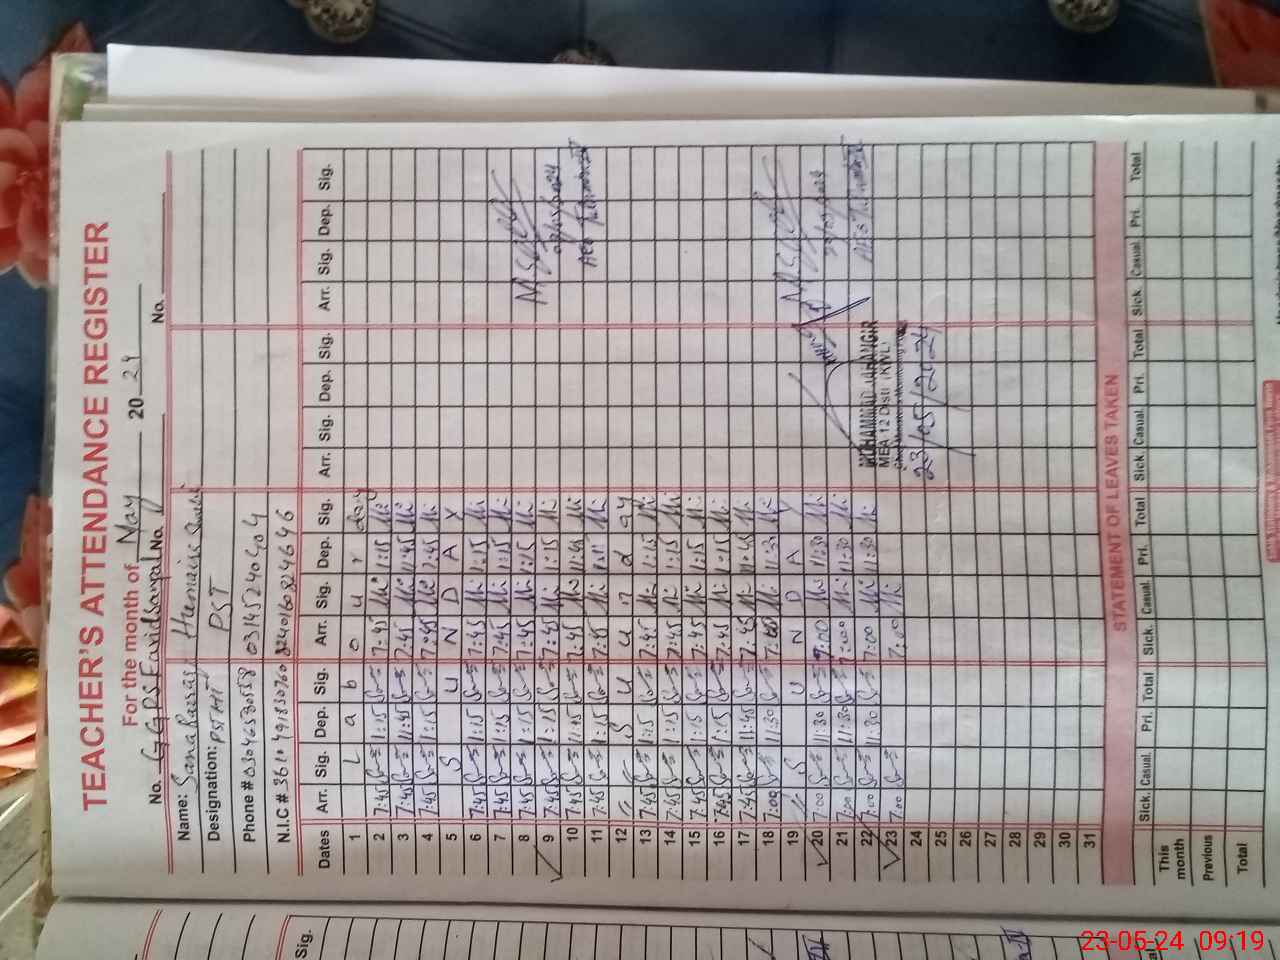 TEACHER'S ATTENDANCE REGISTER
For the month of May 20 24
No. GGPS Faridsanpal No. No.
Name: Humaira
Designation: PST HT PST
Phone # 03046530558 03145240404
N.I.C #
Dates Arr. Sig. Dep. Sig. Arr. Sig. Dep. Sig. Arr. Sig. Dep. Sig. Arr. Sig. Dep. Sig.
1 L a b o u r day
2 7:45 1:15 7:45 1:15
3 7:45 11:45 7:45 11:45
4 7:45 1:15 7:45 1:45
5 S U N D A Y
6 7:45 1:15 7:45 1:15
7 7:45 1:15 7:45 1:15
8 7:45 1:15 7:45 1:15
9 7:45 1:15 7:45 1:15
10 7:45 11:45 7:45 11:45
11 7:45 1:15 7:45 1:15
12 S u n d ay
13 7:45 1:15 7:45 1:15
14 7:45 1:15 7:45 1:15
15 7:45 1:15 7:45 1:15
16 7:45 1:15 7:45 1:15
17 7:45 11:45 7:45 11:45
18 7:00 11:30 7:00 11:30
19 S U N D A Y
20 7:00 11:30 7:00 11:30
21 7:00 11:30 7:00 11:30
22 7:00 11:30 7:00 11:30
23 7:00 7:00
24
25
26
27
28
29
30
31
MUHAMMAD JAHANGIR
MEA 12 Distt (KWL)
23/05/2024
STATEMENT OF LEAVES TAKEN
Sick. Casual. Pri. Total Sick. Casual. Pri. Total Sick. Casual. Pri. Total Sick. Casual Pri. Total
This month
Previous
Total
Sig.
23-05-24 09:19